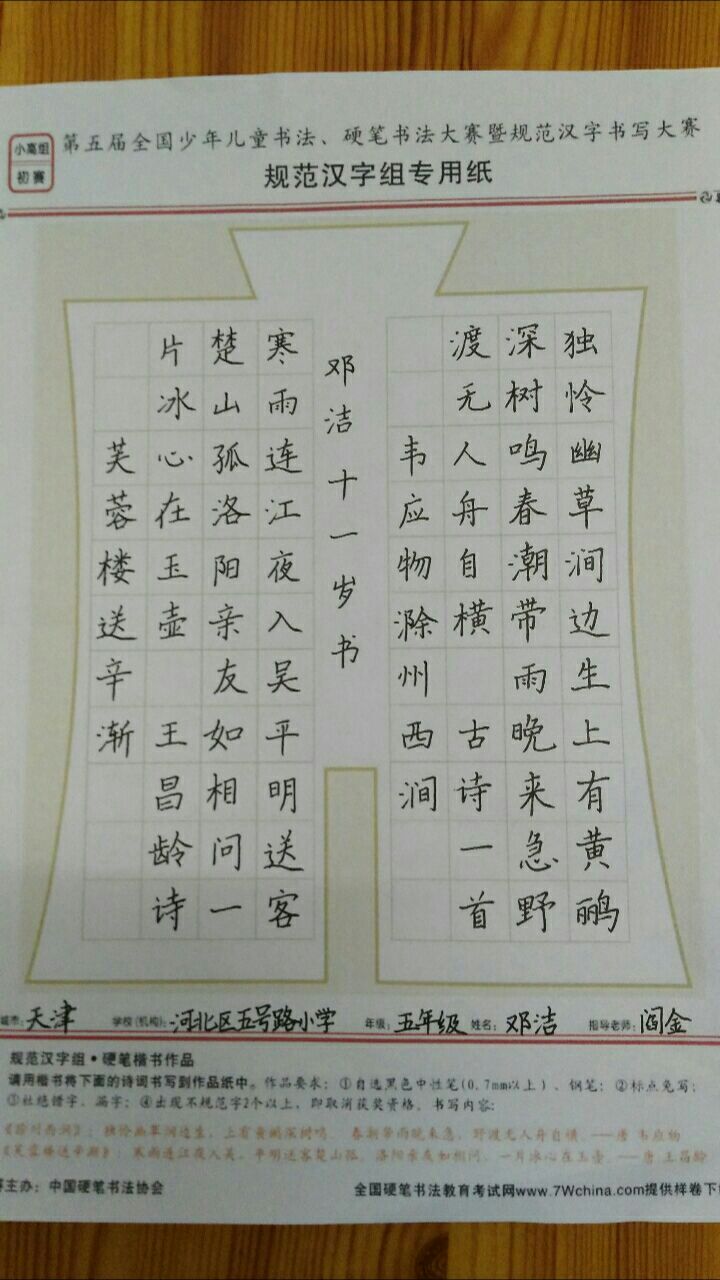 小高组
初赛
第五届全国少年儿童书法、硬笔书法大赛暨规范汉字书写大赛
规范汉字组专用纸
独怜幽草涧边生上有黄鹂
深树鸣春潮带雨晚来急野
渡无人舟自横 古诗一首
韦应物滁州西涧
邓洁十一岁书
寒雨连江夜入吴平明送客
楚山孤洛阳亲友如相问一
片冰心在玉壶 王昌龄诗
芙蓉楼送辛渐
城市：天津 学校(机构)：河北区五号路小学 年级：五年级 姓名：邓洁 指导老师：阎金
规范汉字组·硬笔楷书作品
请用楷书将下面的诗词书写到作品纸中。作品要求：①自选黑色中性笔(0.7mm以上)、钢笔；②标点免写；
③杜绝错字、漏字；④出现不规范字2个以上，即取消获奖资格。书写内容：
《滁州西涧》：独怜幽草涧边生，上有黄鹂深树鸣。 春潮带雨晚来急，野渡无人舟自横。——唐 韦应物
《芙蓉楼送辛渐》：寒雨连江夜入吴，平明送客楚山孤。洛阳亲友如相问，一片冰心在玉壶。——唐 王昌龄
主办：中国硬笔书法协会
全国硬笔书法教育考试网www.7Wchina.com提供样卷下